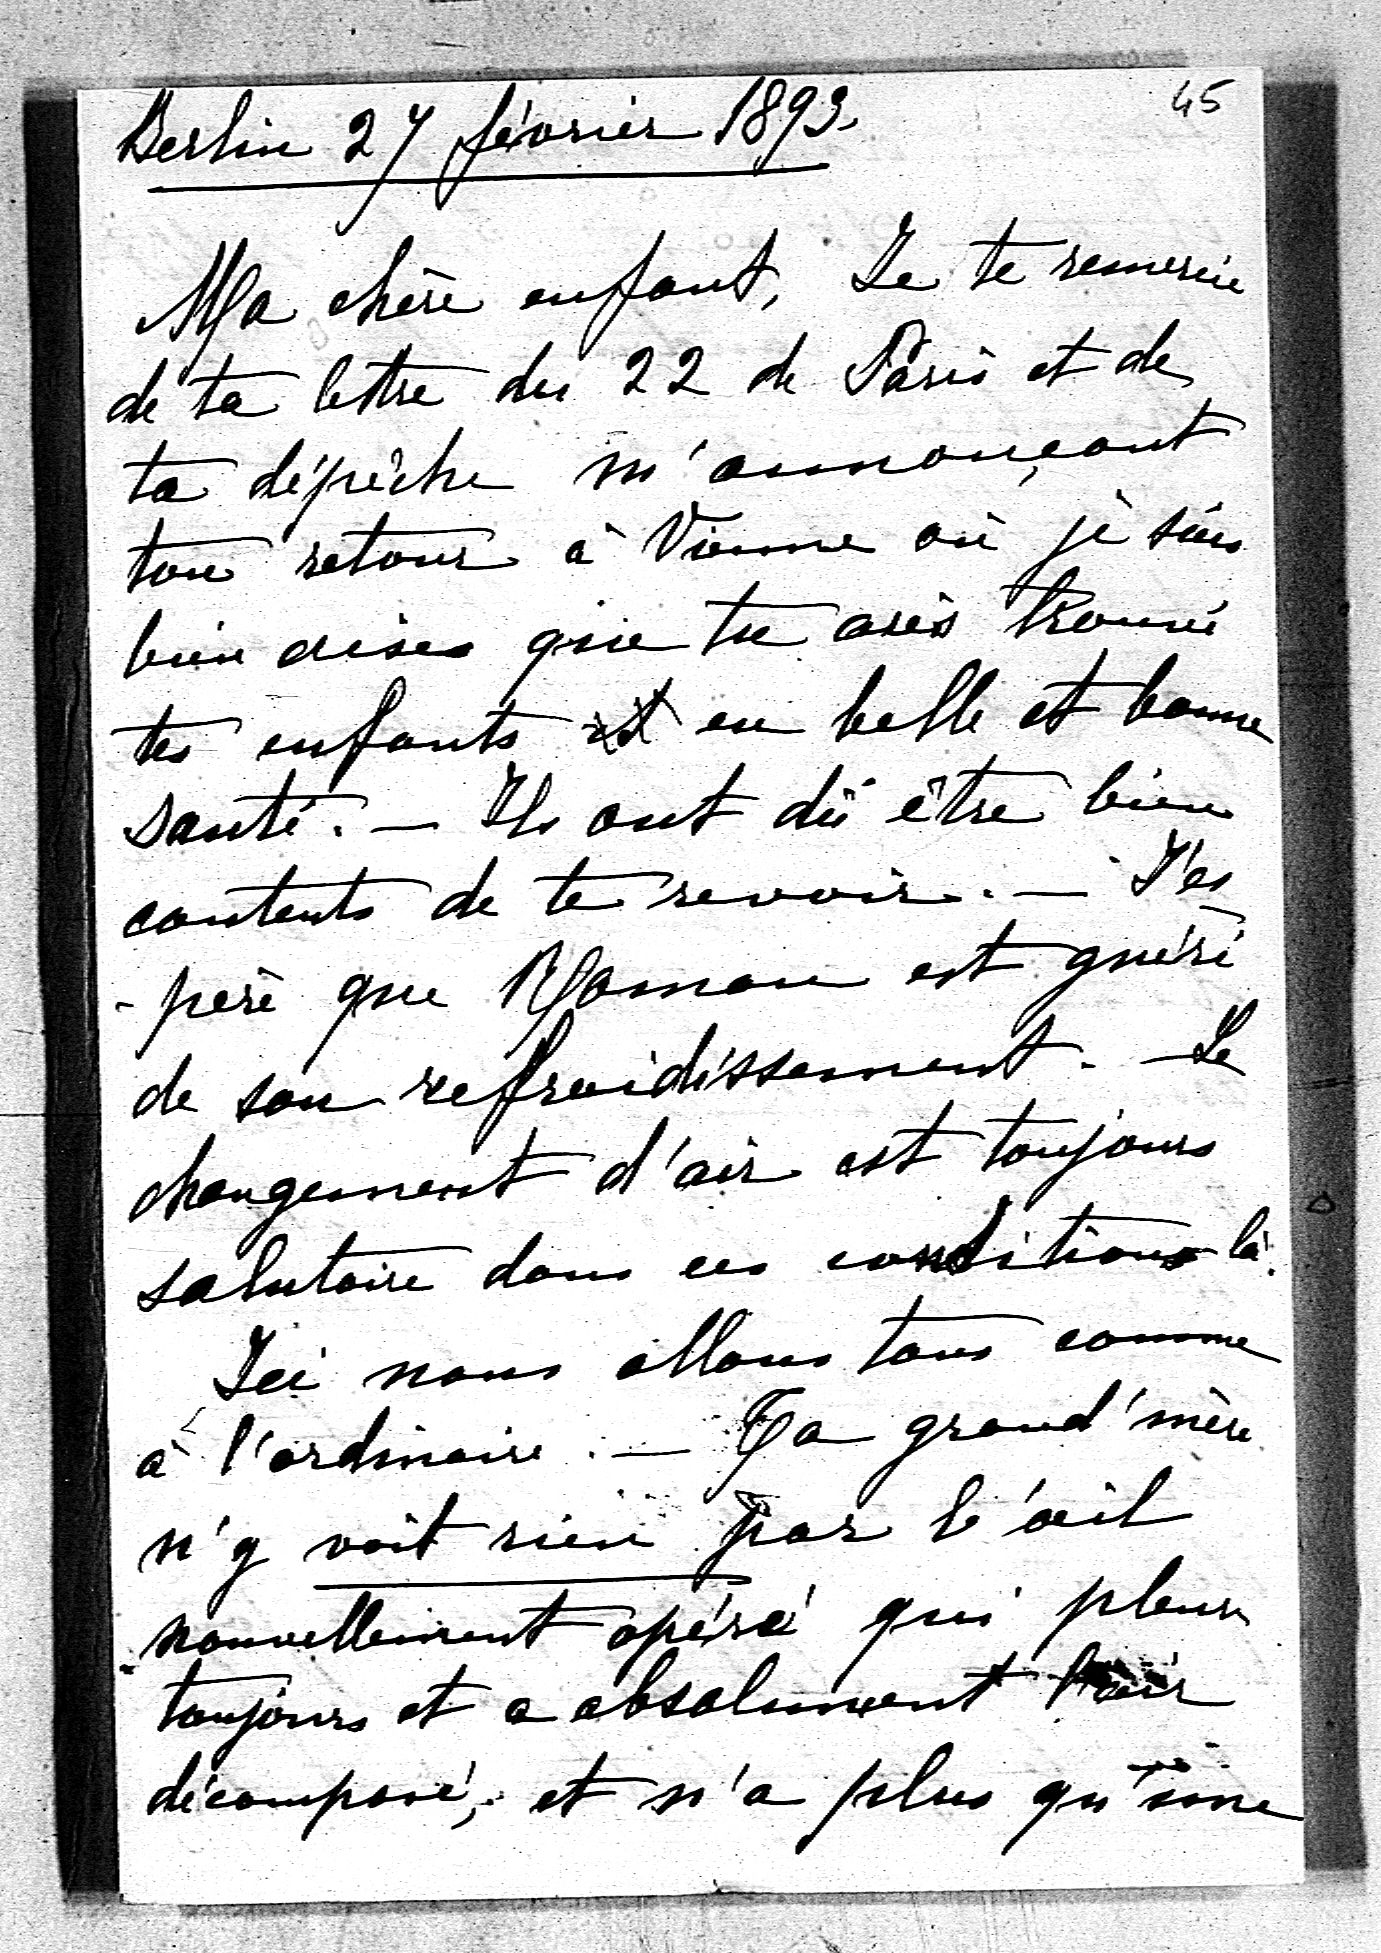 45
Berlin 27 février 1893.
Ma chère enfant, Je te remercie
de ta lettre du 22 de Paris et de
ta dépêche m'annonçant
ton retour à Vienne où je suis
bien aises que tu aies trouvé
tes enfants et en belle et bonne
santé. — Ils ont dû être bien
contents de te revoir. — J'es
-père que Roman est guéri
de son refroidissement. — Le
changement d'air est toujours
salutaire dans ces conditions là.
Ici nous allons tous comme
à l'ordinaire. — Ta grand'mère
n'y voit rien par l'œil
nouvellement opéré qui pleure
toujours et a absolument l'air
décomposé, et n'a plus qu'une